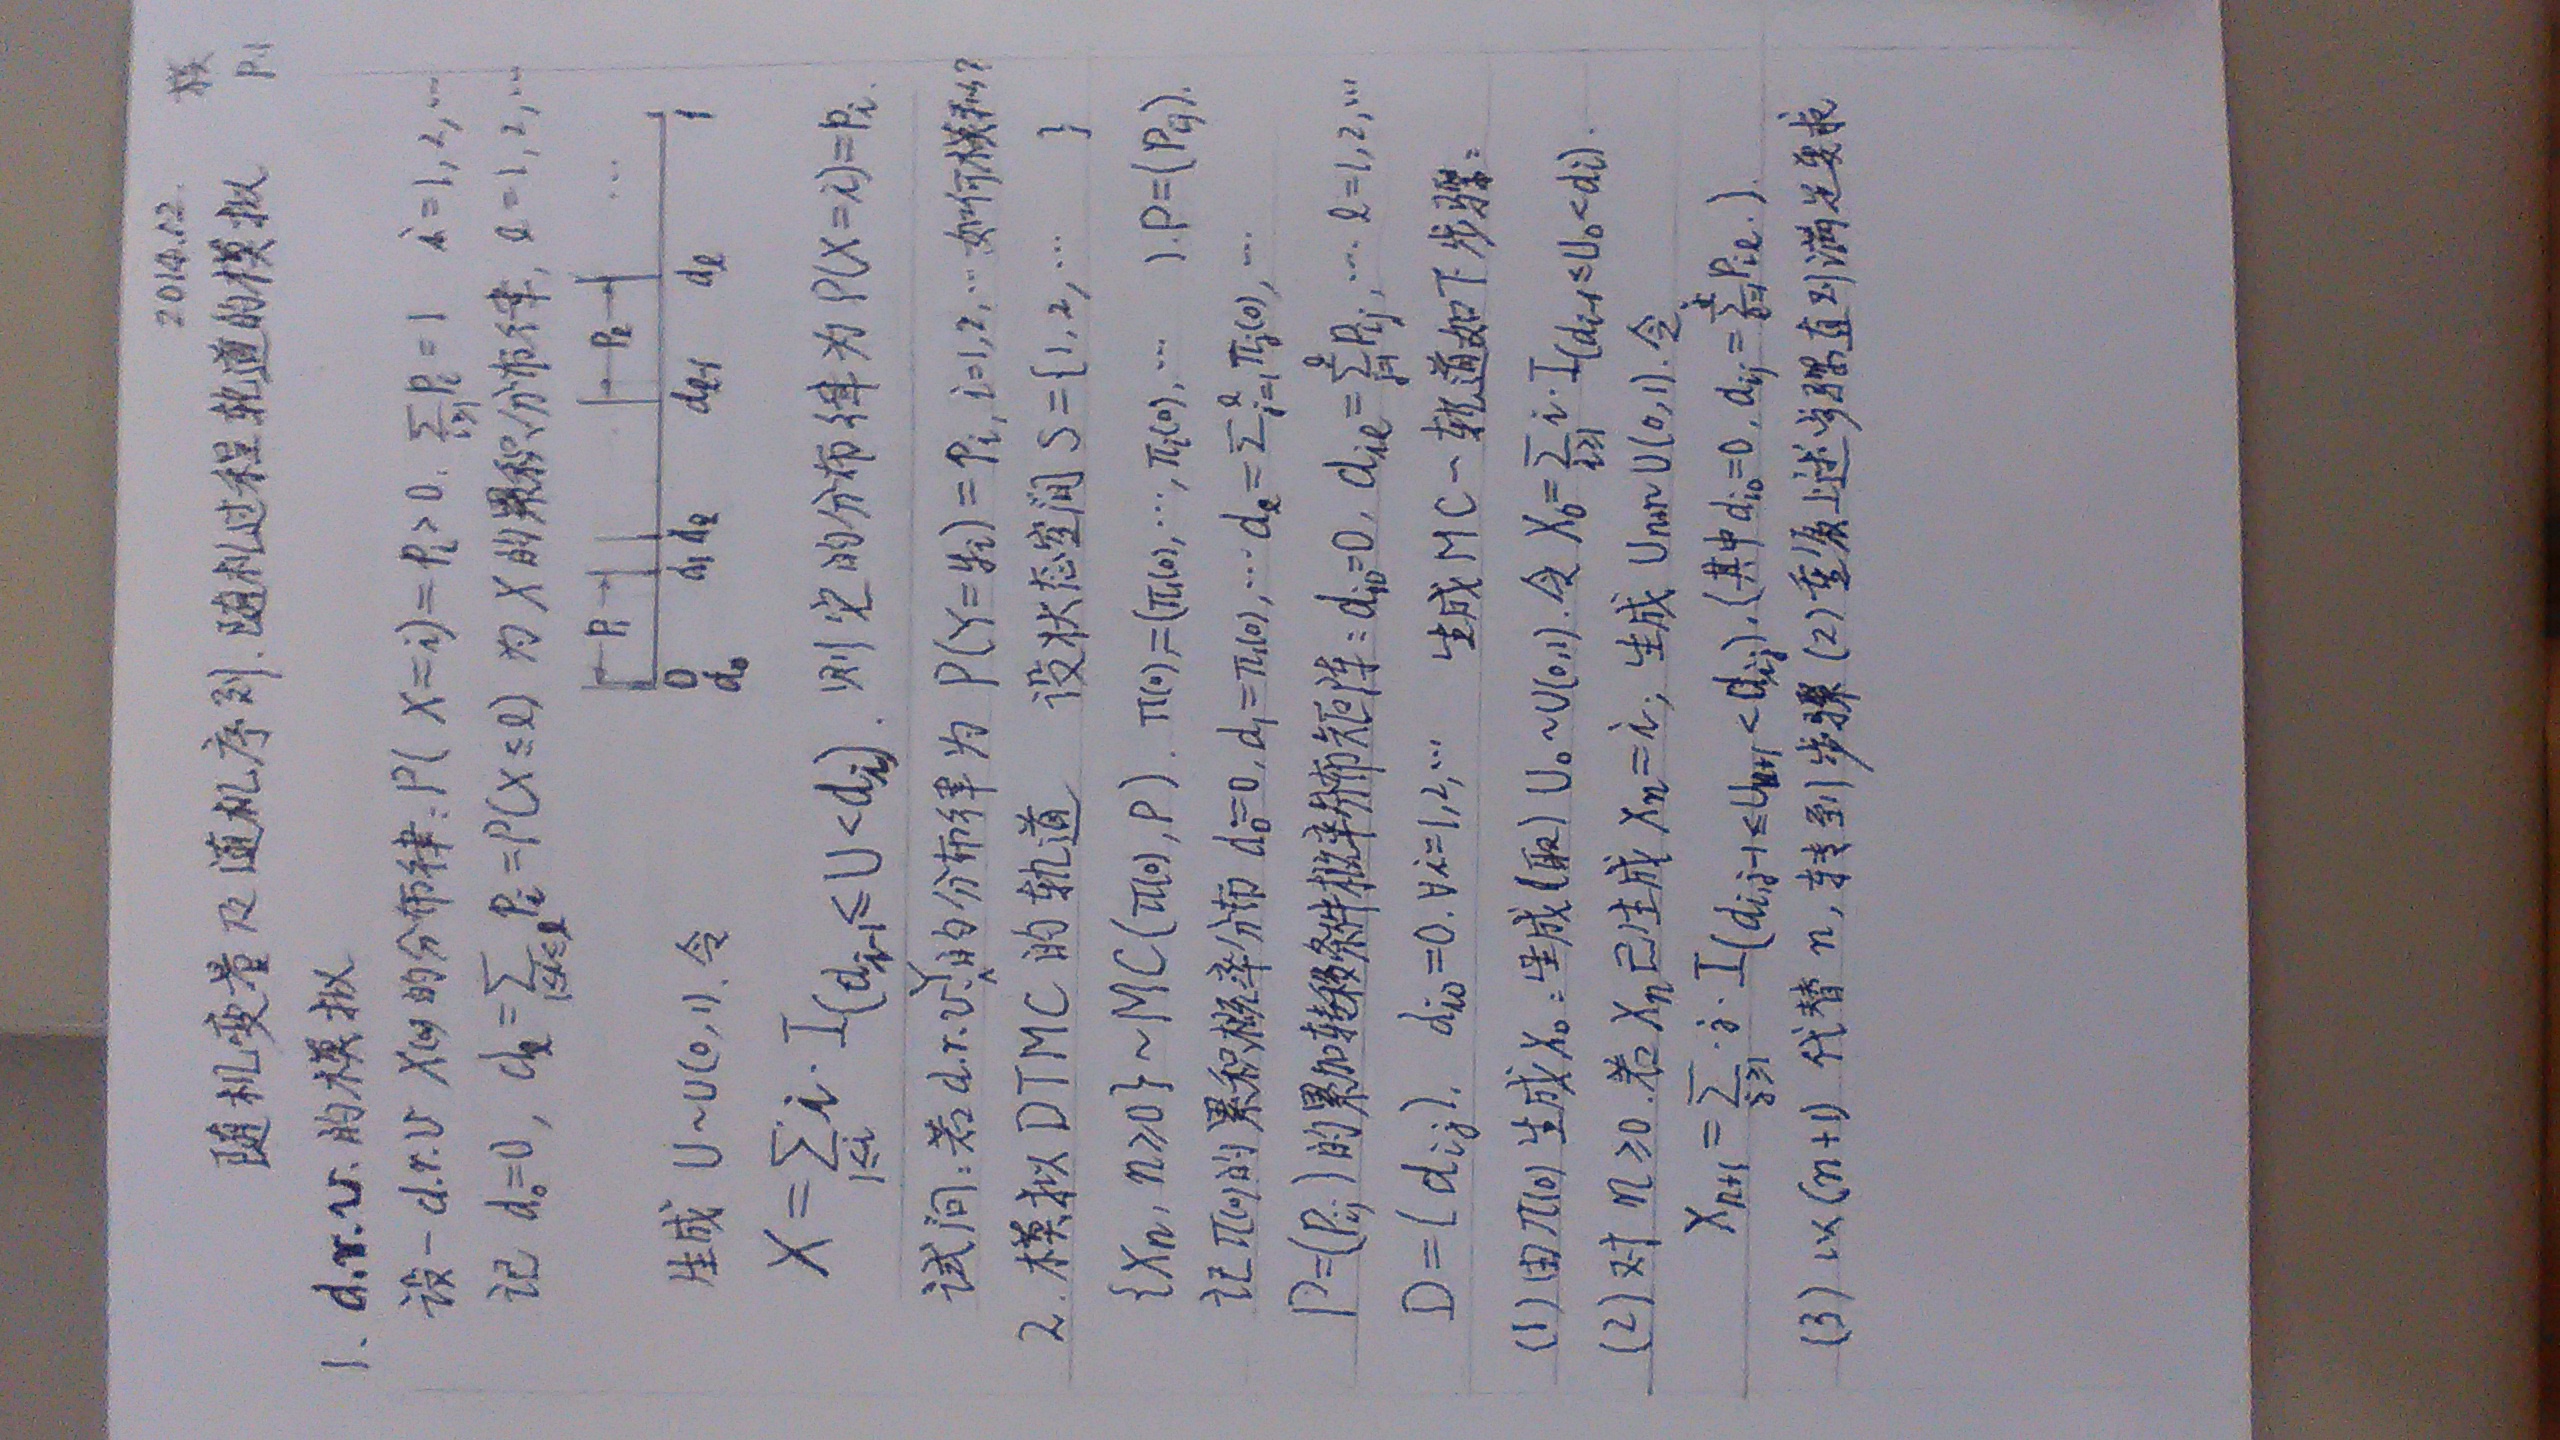 2014.12.
P.1
随机变量及随机序列.随机过程轨道的模拟
1、d.r.v.的模拟
设一d.r.v X(ω)的分布律:P(X=i)=Pi>0. ∑i≥1 Pi=1 i=1,2,…
记 d0=0, dl=∑1≤i≤l Pi=P(X≤l) 为X的累积分布律, l=1,2,…
P1 Pl …
0 d1 d2 dl-1 dl 1
d0
生成 U~U(0,1).令
X=∑1≤i i·I(di-1≤U<di). 则它的分布律为P(X=i)=Pi.
试问:若d.r.v.Y的分布律为 P(Y=yi)=Pi, i=1,2,…如何模拟?
2.模拟DTMC的轨道 设状态空间S={1,2,… }
{Xn, n≥0}~MC(π(0),P). π(0)=(π1(0),…,πi(0),… ).P=(Pij).
记π(0)的累积概率分布 d0=0,d1=π1(0),…dl=∑j=1^l πj(0),…
P=(Pij)的累加转移条件概率分布矩阵:di0=0. dil=∑j=1^l Pij,… l=1,2,…
D=(dij). di0=0.∀i=1,2,… 生成MC一轨道如下步骤:
(1)由π(0)生成X0:生成(取) U0~U(0,1).令 X0=∑i≥1 i·I(di-1≤U0<di).
(2)对n≥0.若Xn已生成Xn=i; 生成 Un+1~U(0,1).令
Xn+1=∑j≥1 j·I(di,j-1≤Un+1<dij).(其中di0=0,dij=∑l=1^j Pil.)
(3)以(n+1)代替n,转到步骤(2)重复上述步骤直到满足要求